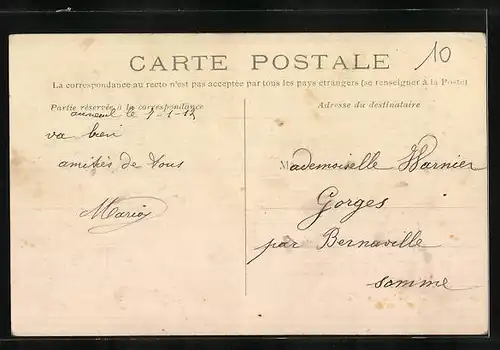 CARTE POSTALE
10
La correspondance au recto n'est pas acceptée par tous les pays étrangers (se renseigner à la Poste)
Partie réservée à la correspondance
Adresse du destinataire
auneuil le 7-1-12
va bien
amitiés de tous
Maria
Mademoiselle Warnier
Gorges
par Bernaville
somme